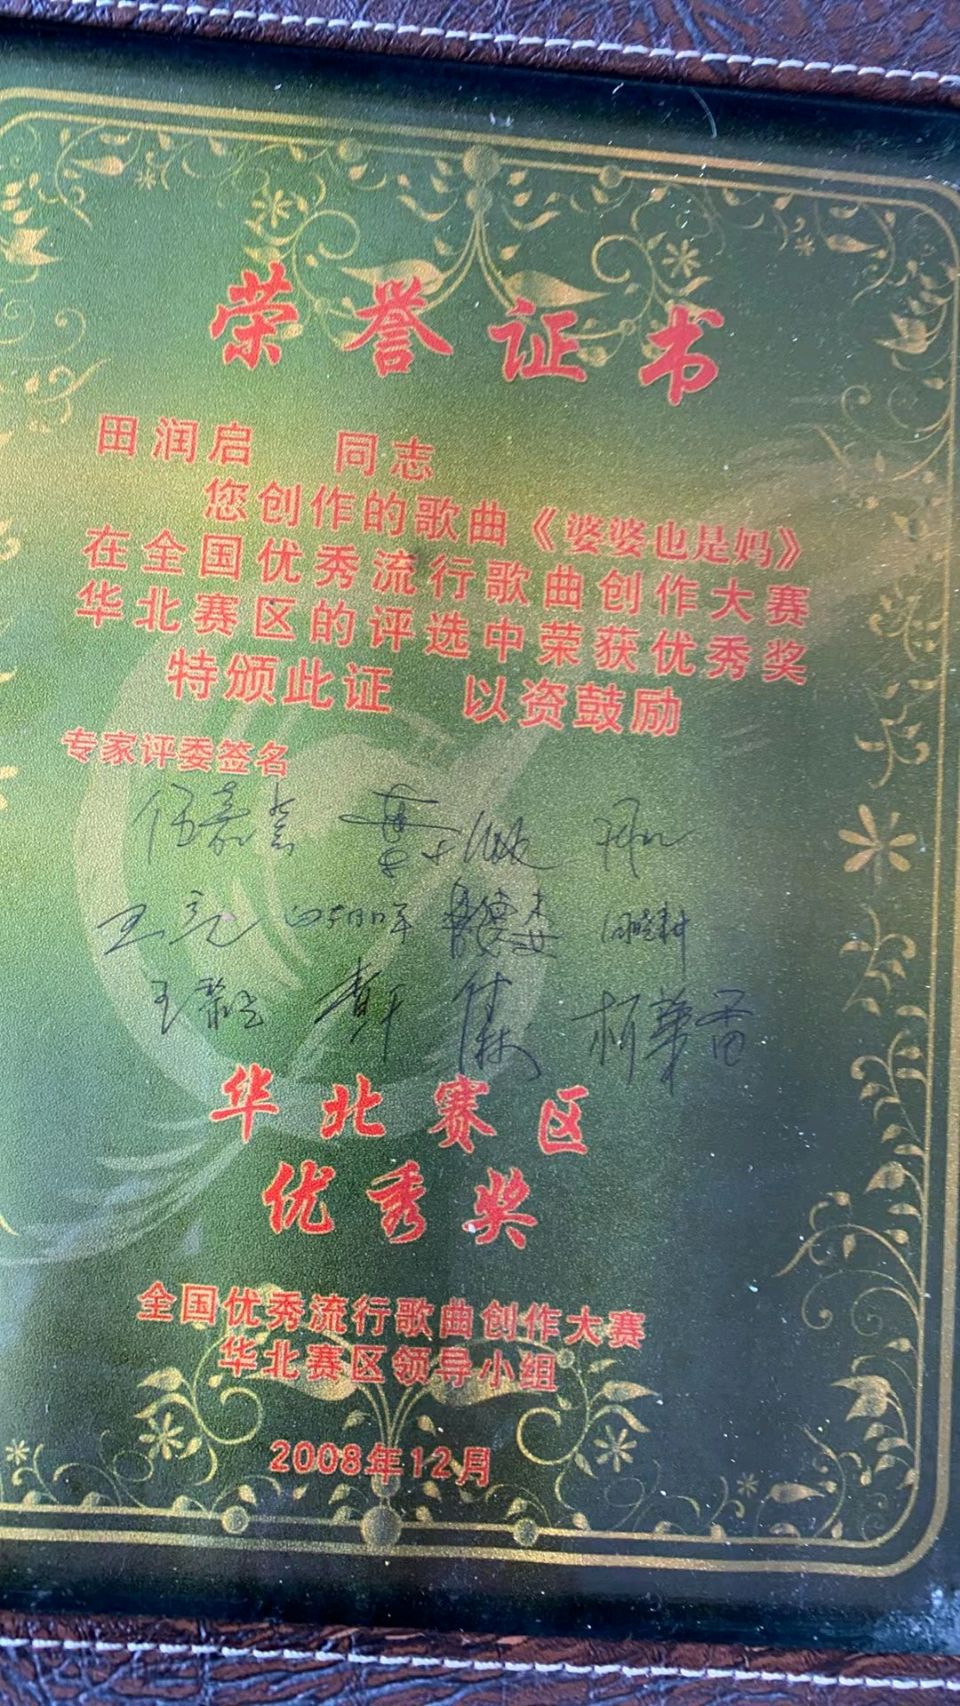 荣誉证书
田润启 同志
您创作的歌曲《婆婆也是妈》
在全国优秀流行歌曲创作大赛
华北赛区的评选中荣获优秀奖
特颁此证 以资鼓励
专家评委签名
华北赛区
优秀奖
全国优秀流行歌曲创作大赛
华北赛区领导小组
2008年12月